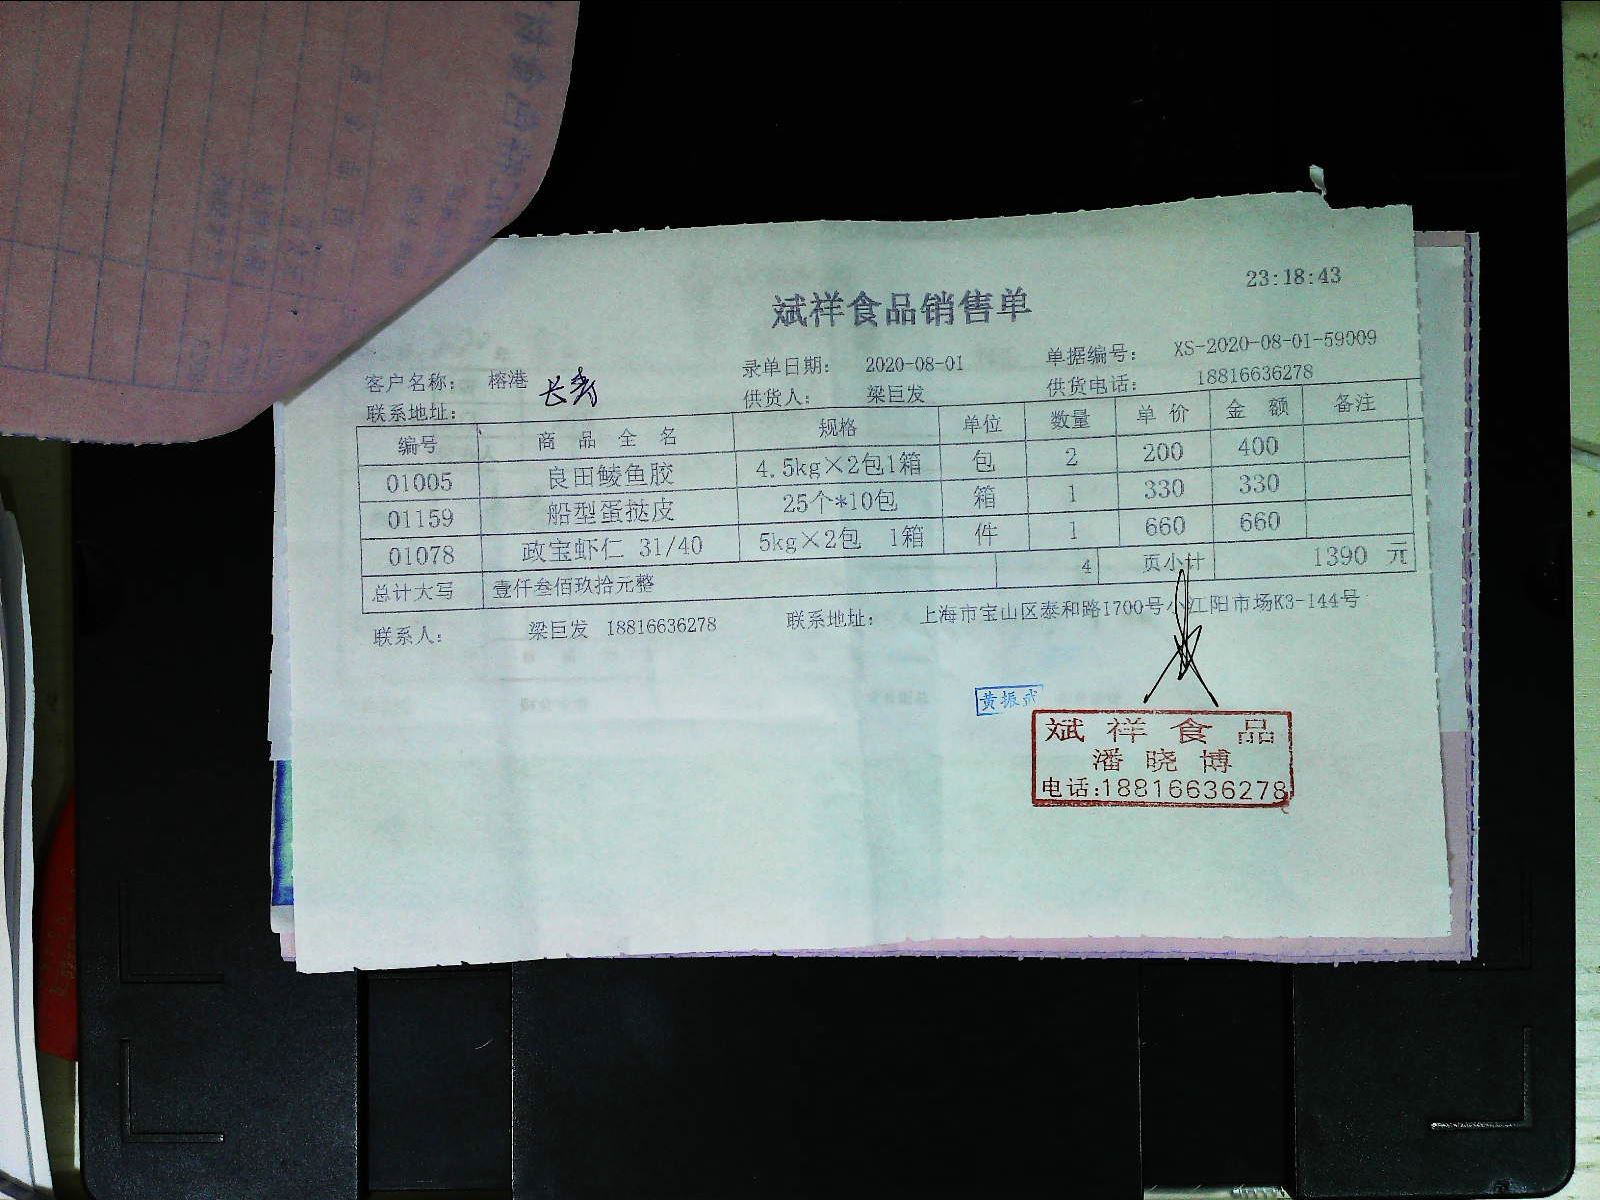 23:18:43
斌祥食品销售单
客户名称： 榕港 长寿 录单日期： 2020-08-01 单据编号： XS-2020-08-01-59009
联系地址： 供货人： 梁巨发 供货电话： 18816636278
编号 商品全名 规格 单位 数量 单价 金额 备注
01005 良田鲮鱼胶 4.5kg×2包1箱 包 2 200 400
01159 船型蛋挞皮 25个*10包 箱 1 330 330
01078 政宝虾仁 31/40 5kg×2包 1箱 件 1 660 660
总计大写 壹仟叁佰玖拾元整 4 页小计 1390 元
联系人： 梁巨发 18816636278 联系地址： 上海市宝山区泰和路1700号小江阳市场K3-144号
黄振武
斌祥食品
潘晓博
电话:18816636278